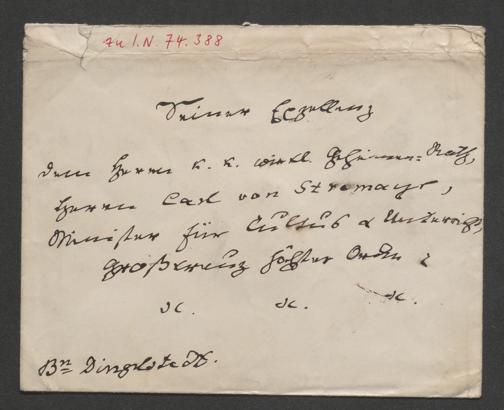 zu I.N. 74.388
Seiner Exzellenz
dem Herrn k. k. wirkl. geheimen Rath,
Herrn Carl von Stremayr,
Minister für Cultus & Unterricht,
Großkreuz höchster Orden
&c. &c. &c.
Bn Dingelstedt.